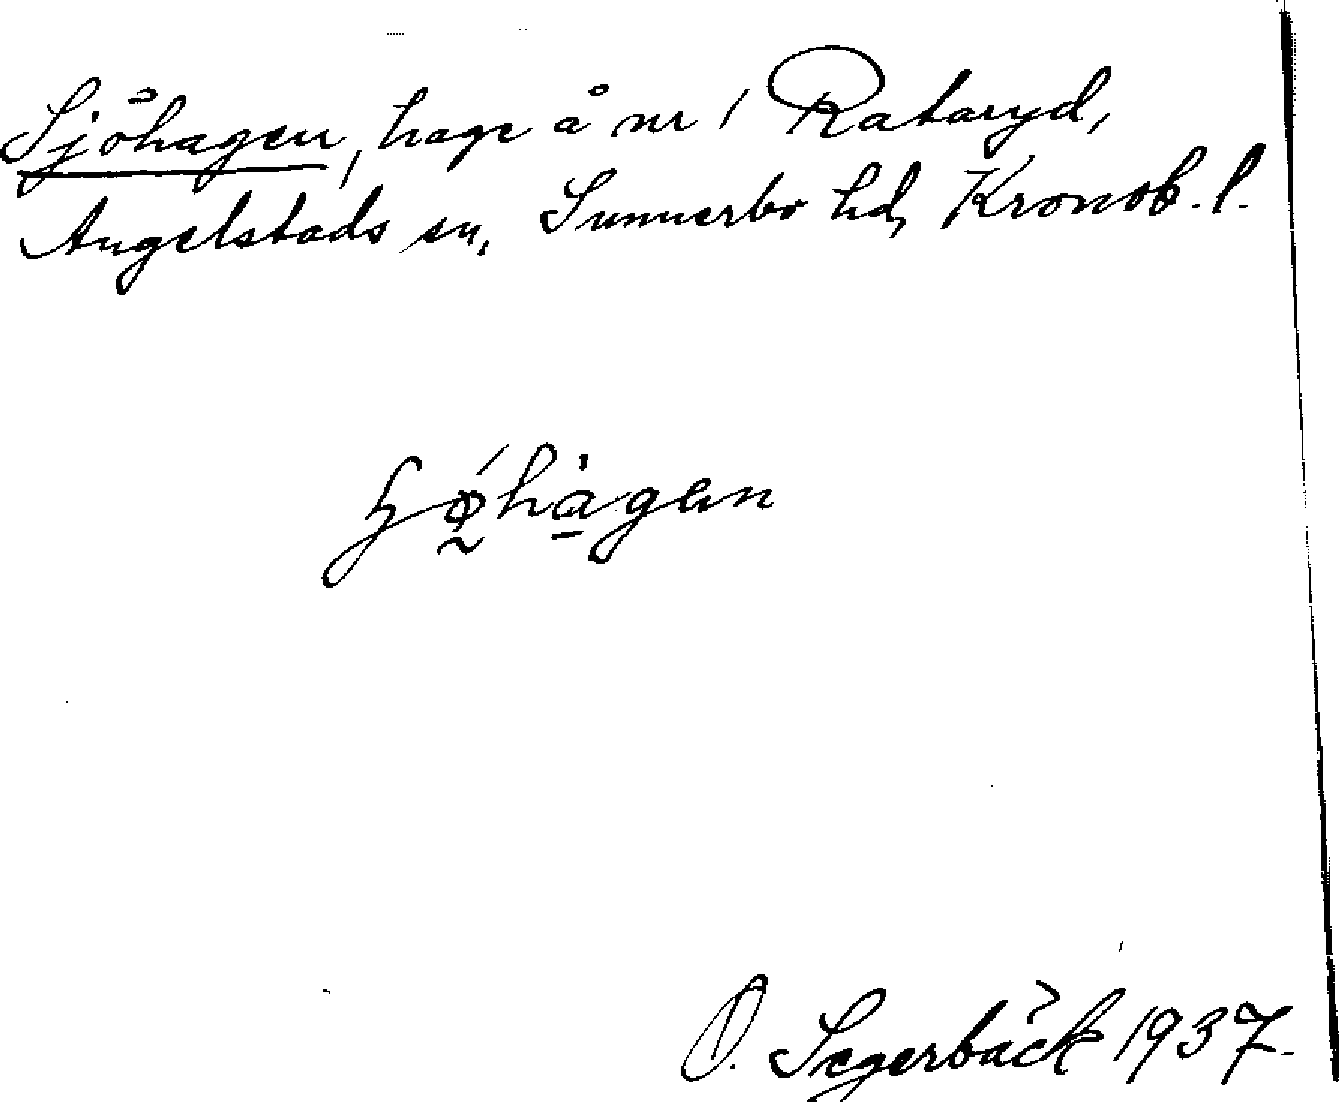 Sjöhagen, hage å nr 1 Rataryd,
Angelstads sn, Sunnerbo hd, Kronob. l.
O. Segerbäck 1937.